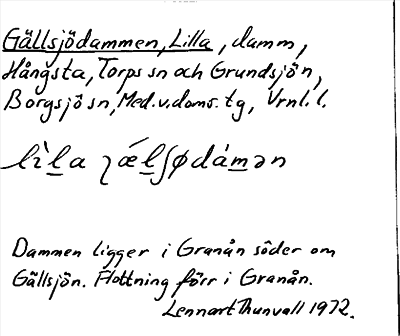 Gällsjödammen, Lilla, damm,
Hångsta, Torps sn och Grundsjön,
Borgsjö sn, Med. v. doms. tg, Vrnl. l.
lìl̲a ɣǽl̲ʃødàm̲ən
Dammen ligger i Granån söder om
Gällsjön. Flottning förr i Granån.
Lennart Thunvall 1972.